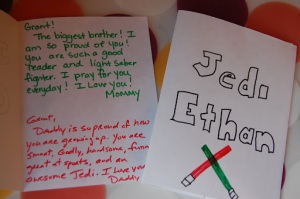 Grant!
The biggest brother! I
am so proud of you!
you are such a good
reader and light saber
fighter. I pray for you
everyday! I Love you!
Mommy
Grant,
Daddy is so proud of how
you are growing up. You are
smart, Godly, handsome, funny
great at sports, and an
awesome Jedi. I love you
Daddy
Jedi
Ethan